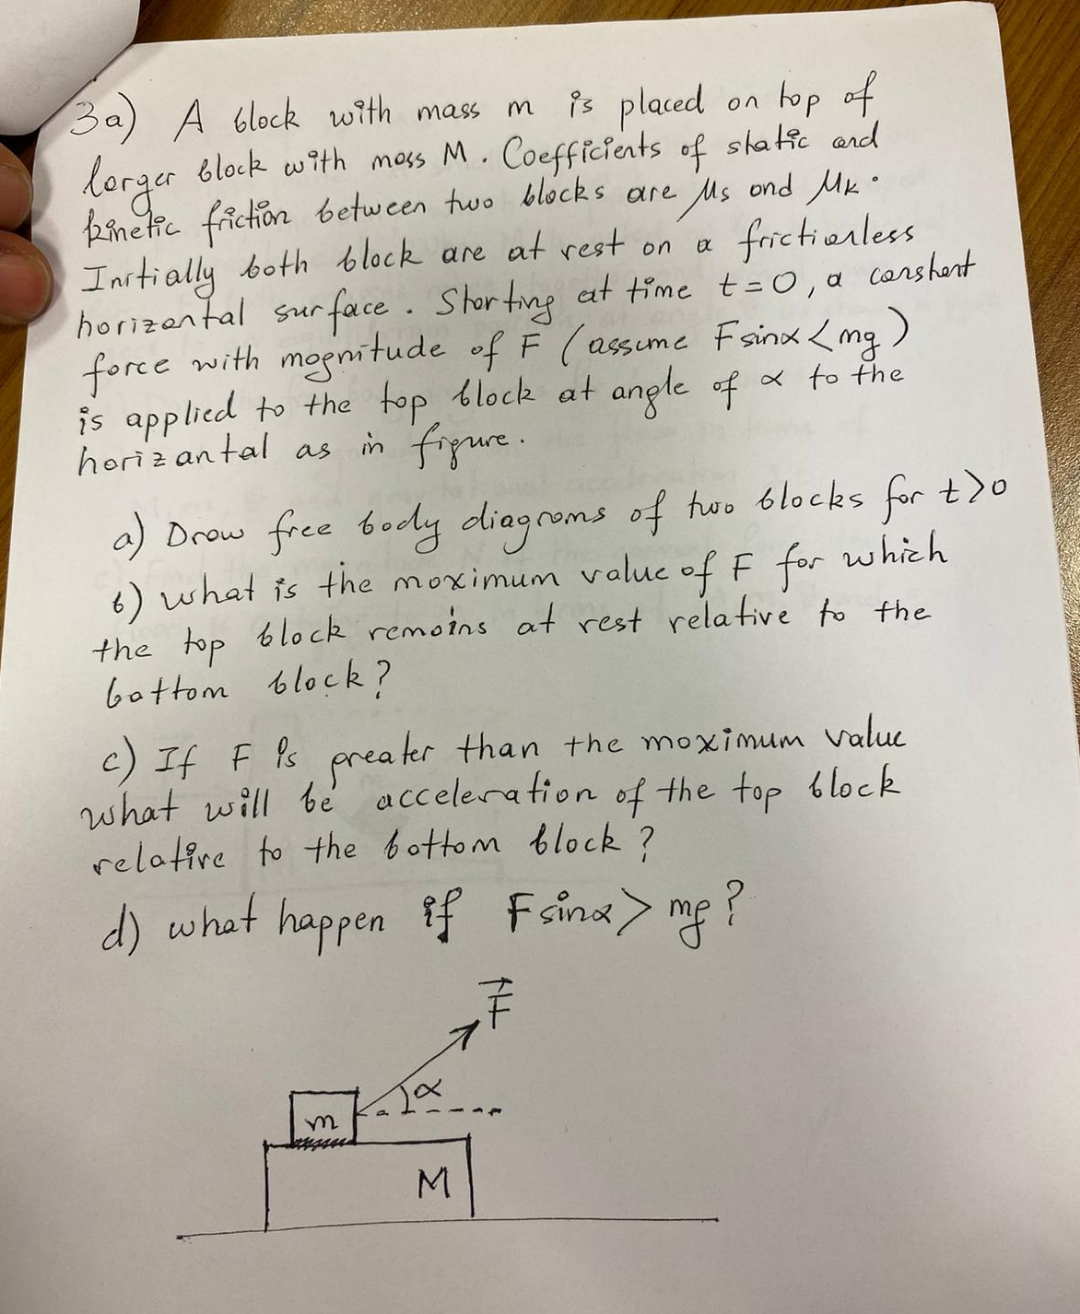 3a) A block with mass m is placed on top of
larger block with mass M. Coefficients of static and
kinetic friction between two blocks are μs and μk.
Initially both block are at rest on a frictionless
horizontal surface. Starting at time t=0, a constant
force with magnitude of F (assume Fsinα<mg)
is applied to the top block at angle of α to the
horizantal as in figure.
a) Draw free body diagrams of two blocks for t>0
b) what is the maximum value of F for which
the top block remains at rest relative to the
bottom block?
c) If F is greater than the maximum value
what will be acceleration of the top block
relative to the bottom block?
d) what happen if Fsinα> mg?
F
α
m
M